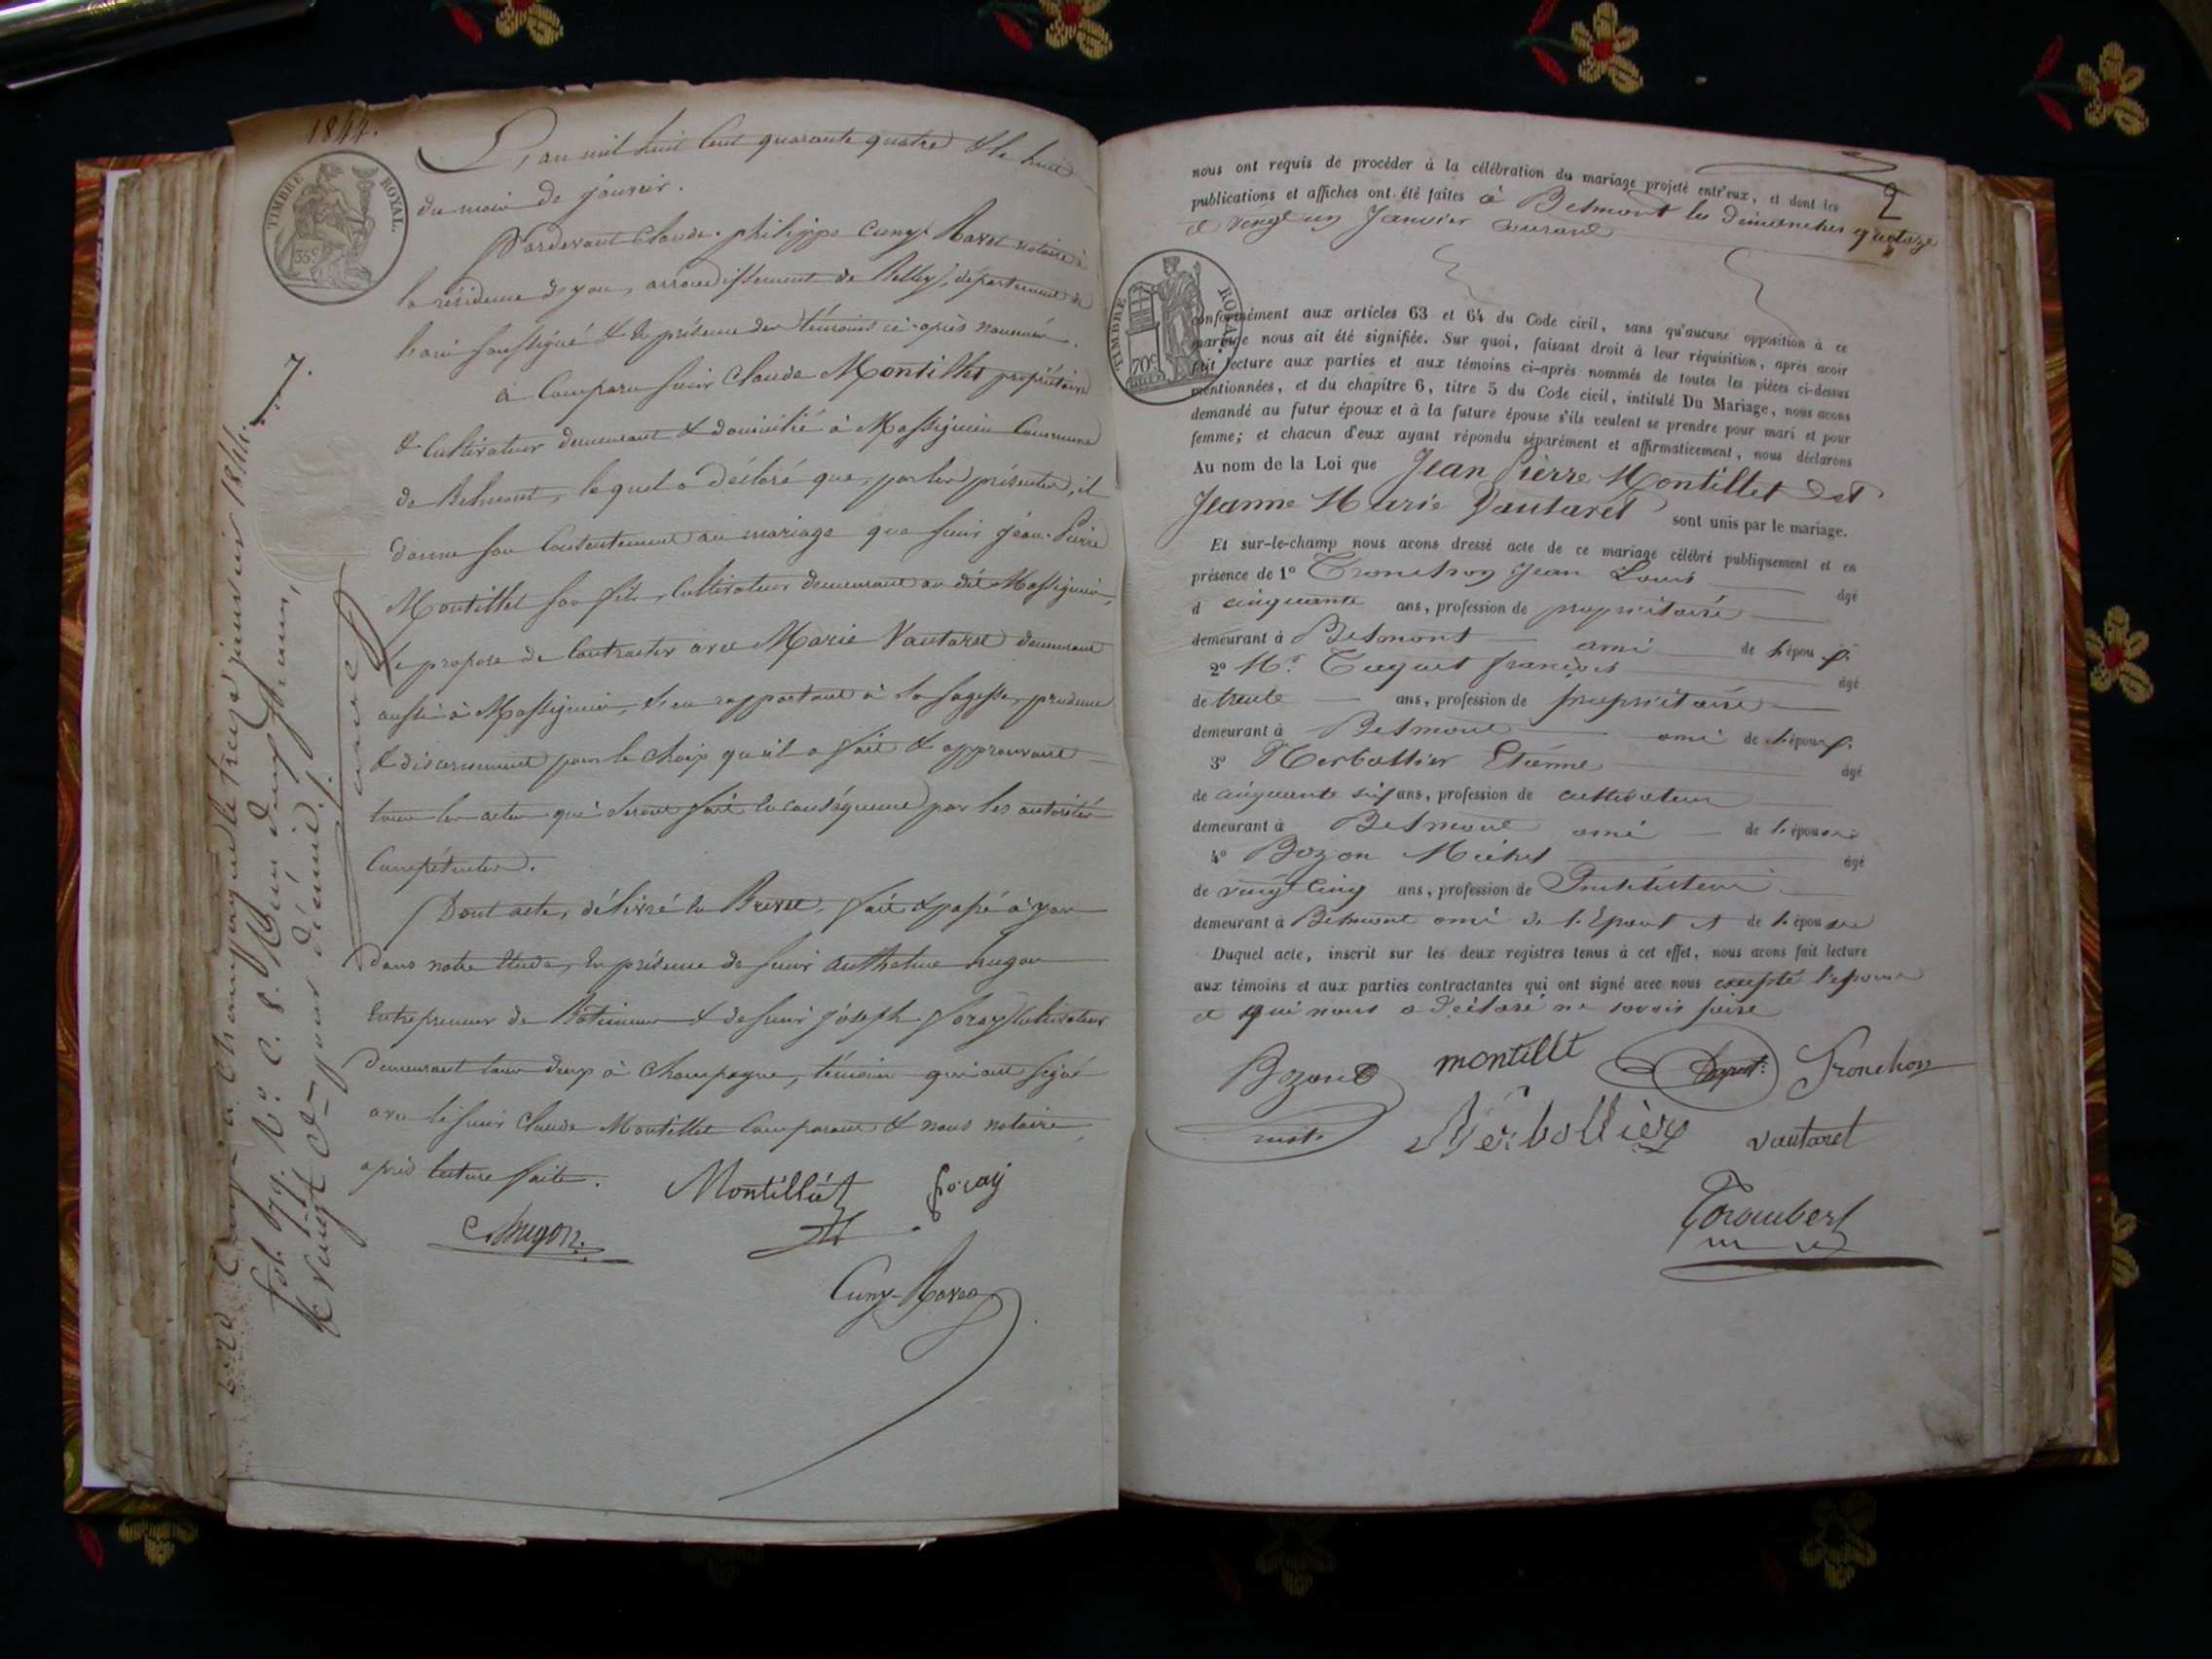 1844.
TIMBRE ROYAL.
35c
L'an mil huit Cent quarante quatre & le huit
du mois de janvier.
Pardevant Claude-philippe Cuny-Ravet notaire à
la résidence d'yon, arrondissement de Belley, département de
l'ain soussigné & en présence des témoins ci-après nommés.
à Comparu sieur Claude Montillet propriétaire
& Cultivateur demeurant & domicilié à Massignieu Commune
de Belmont, lequel a déclaré que, par les présentes, il
donne son Consentement au mariage que sieur jean-Pierre
Montillet son fils, Cultivateur demeurant au dit Massignieu,
se propose de Contracter avec Marie Vautaret demeurant
aussi à Massignieu, s'en rapportant à sa sagesse, prudence
& discernement pour le Choix qu'il a fait & approuvant
tous les actes qui seront fait en conséquence par les autorités
Compétentes.
Dont acte, délivré en Brevet. fait & passé à yon
dans notre Etude, en présence de sieur anthelme hugon
Entrepreneur de Bâtiment & de sieur joseph foray Cultivateur
demeurant tous deux à Champagne, témoins qui ont signé
avec le sieur Claude Montillet Comparant & nous notaire,
après lecture faite.
Montillet
foray
hugon
Cuny-Ravet
à Champagne le treize janvier 1844.
fol. 79. Ro. C. 8. Reçu deux francs,
& vingt Cmes pour décime.
7.
2
nous ont requis de procéder à la célébration du mariage projeté entr'eux, et dont les
publications et affiches ont été faites à Belmont les dimanches quatorze
et vingt un Janvier courant
TIMBRE ROYAL
70c
conformément aux articles 63 et 64 du Code civil, sans qu'aucune opposition à ce
mariage nous ait été signifiée. Sur quoi, faisant droit à leur réquisition, après avoir
fait lecture aux parties et aux témoins ci-après nommés de toutes les pièces ci-dessus
mentionnées, et du chapitre 6, titre 5 du Code civil, intitulé Du Mariage, nous avons
demandé au futur époux et à la future épouse s'ils veulent se prendre pour mari et pour
femme; et chacun d'eux ayant répondu séparément et affirmativement, nous déclarons
Au nom de la Loi que Jean Pierre Montillet et
Jeanne Marie Vautaret sont unis par le mariage.
Et sur-le-champ nous avons dressé acte de ce mariage célébré publiquement et en
présence de 1º Tronchon Jean Louis âgé
d cinquante ans, profession de propriétaire
demeurant à Belmont ami de l'épou
2º Mr. François âgé
de trente ans, profession de propriétaire
demeurant à Belmont ami de l'épou
3º Merbollier Etienne âgé
de cinquante six ans, profession de cultivateur
demeurant à Belmont ami de l'épouse
4º Bozon Michel âgé
de vingt cinq ans, profession de Instituteur
demeurant à Belmont ami de l'Epoux et de l'épouse
Duquel acte, inscrit sur les deux registres tenus à cet effet, nous avons fait lecture
aux témoins et aux parties contractantes qui ont signé avec nous excepté l'épouse
et qui nous a déclaré ne savoir faire
Bozon
montillet
Tronchon
Merbollier
vautaret
Torombert